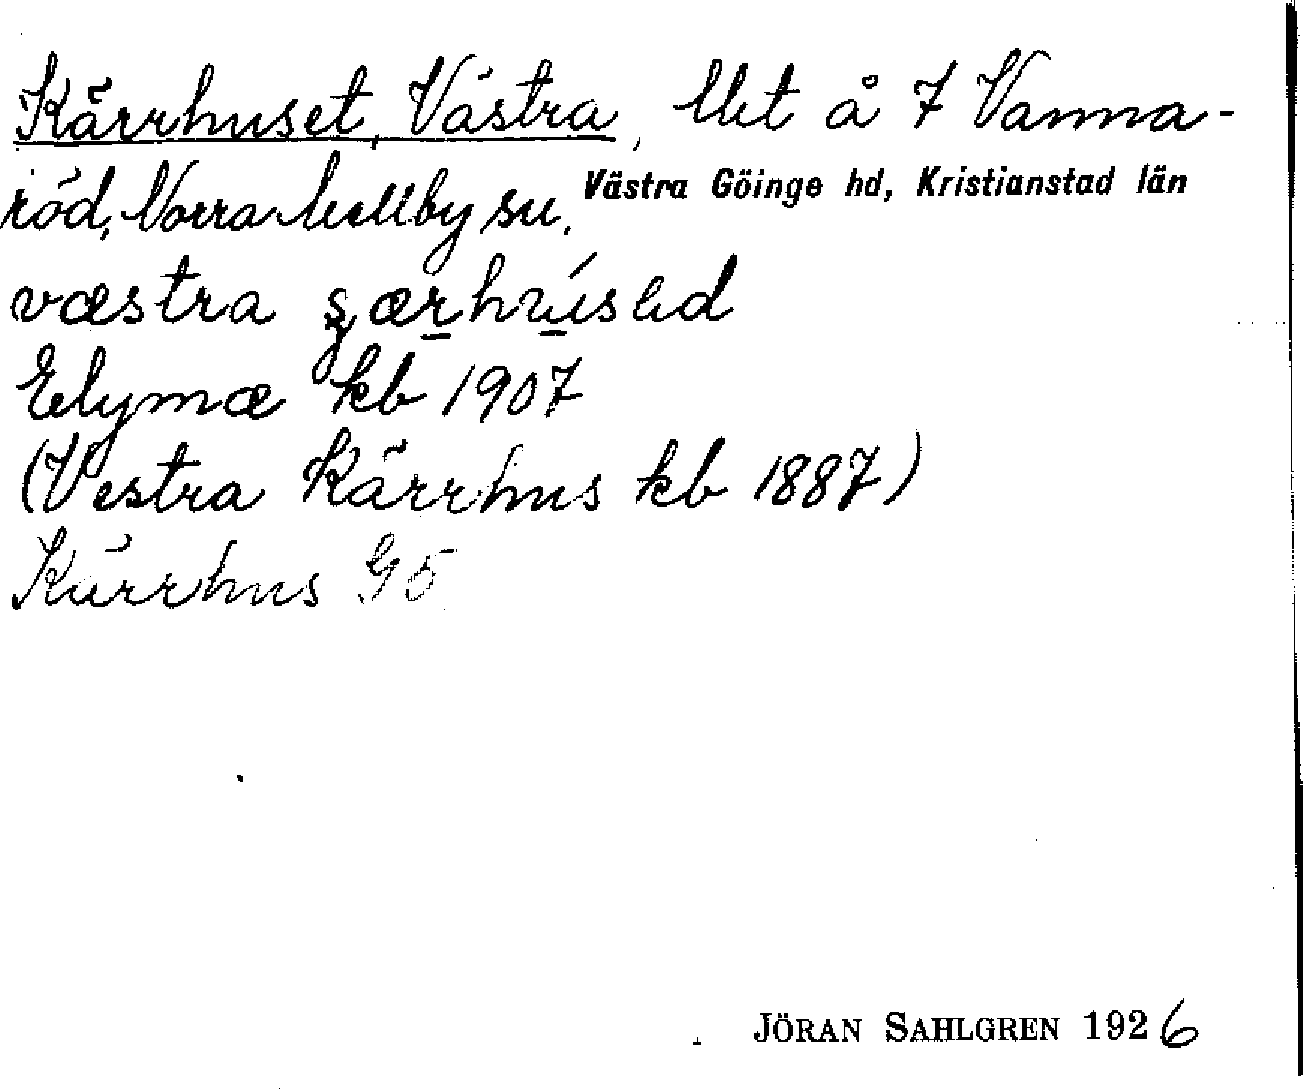 Kärrhuset, Västra, lht å 7 Vanna-
röd, Norra Mellby sn, Västra Göinge hd, Kristianstad län
væstra
Etymæ kb 1907
(Vestra Kärrhus kb 1887)
Kärrhus G5
JÖRAN SAHLGREN 1926